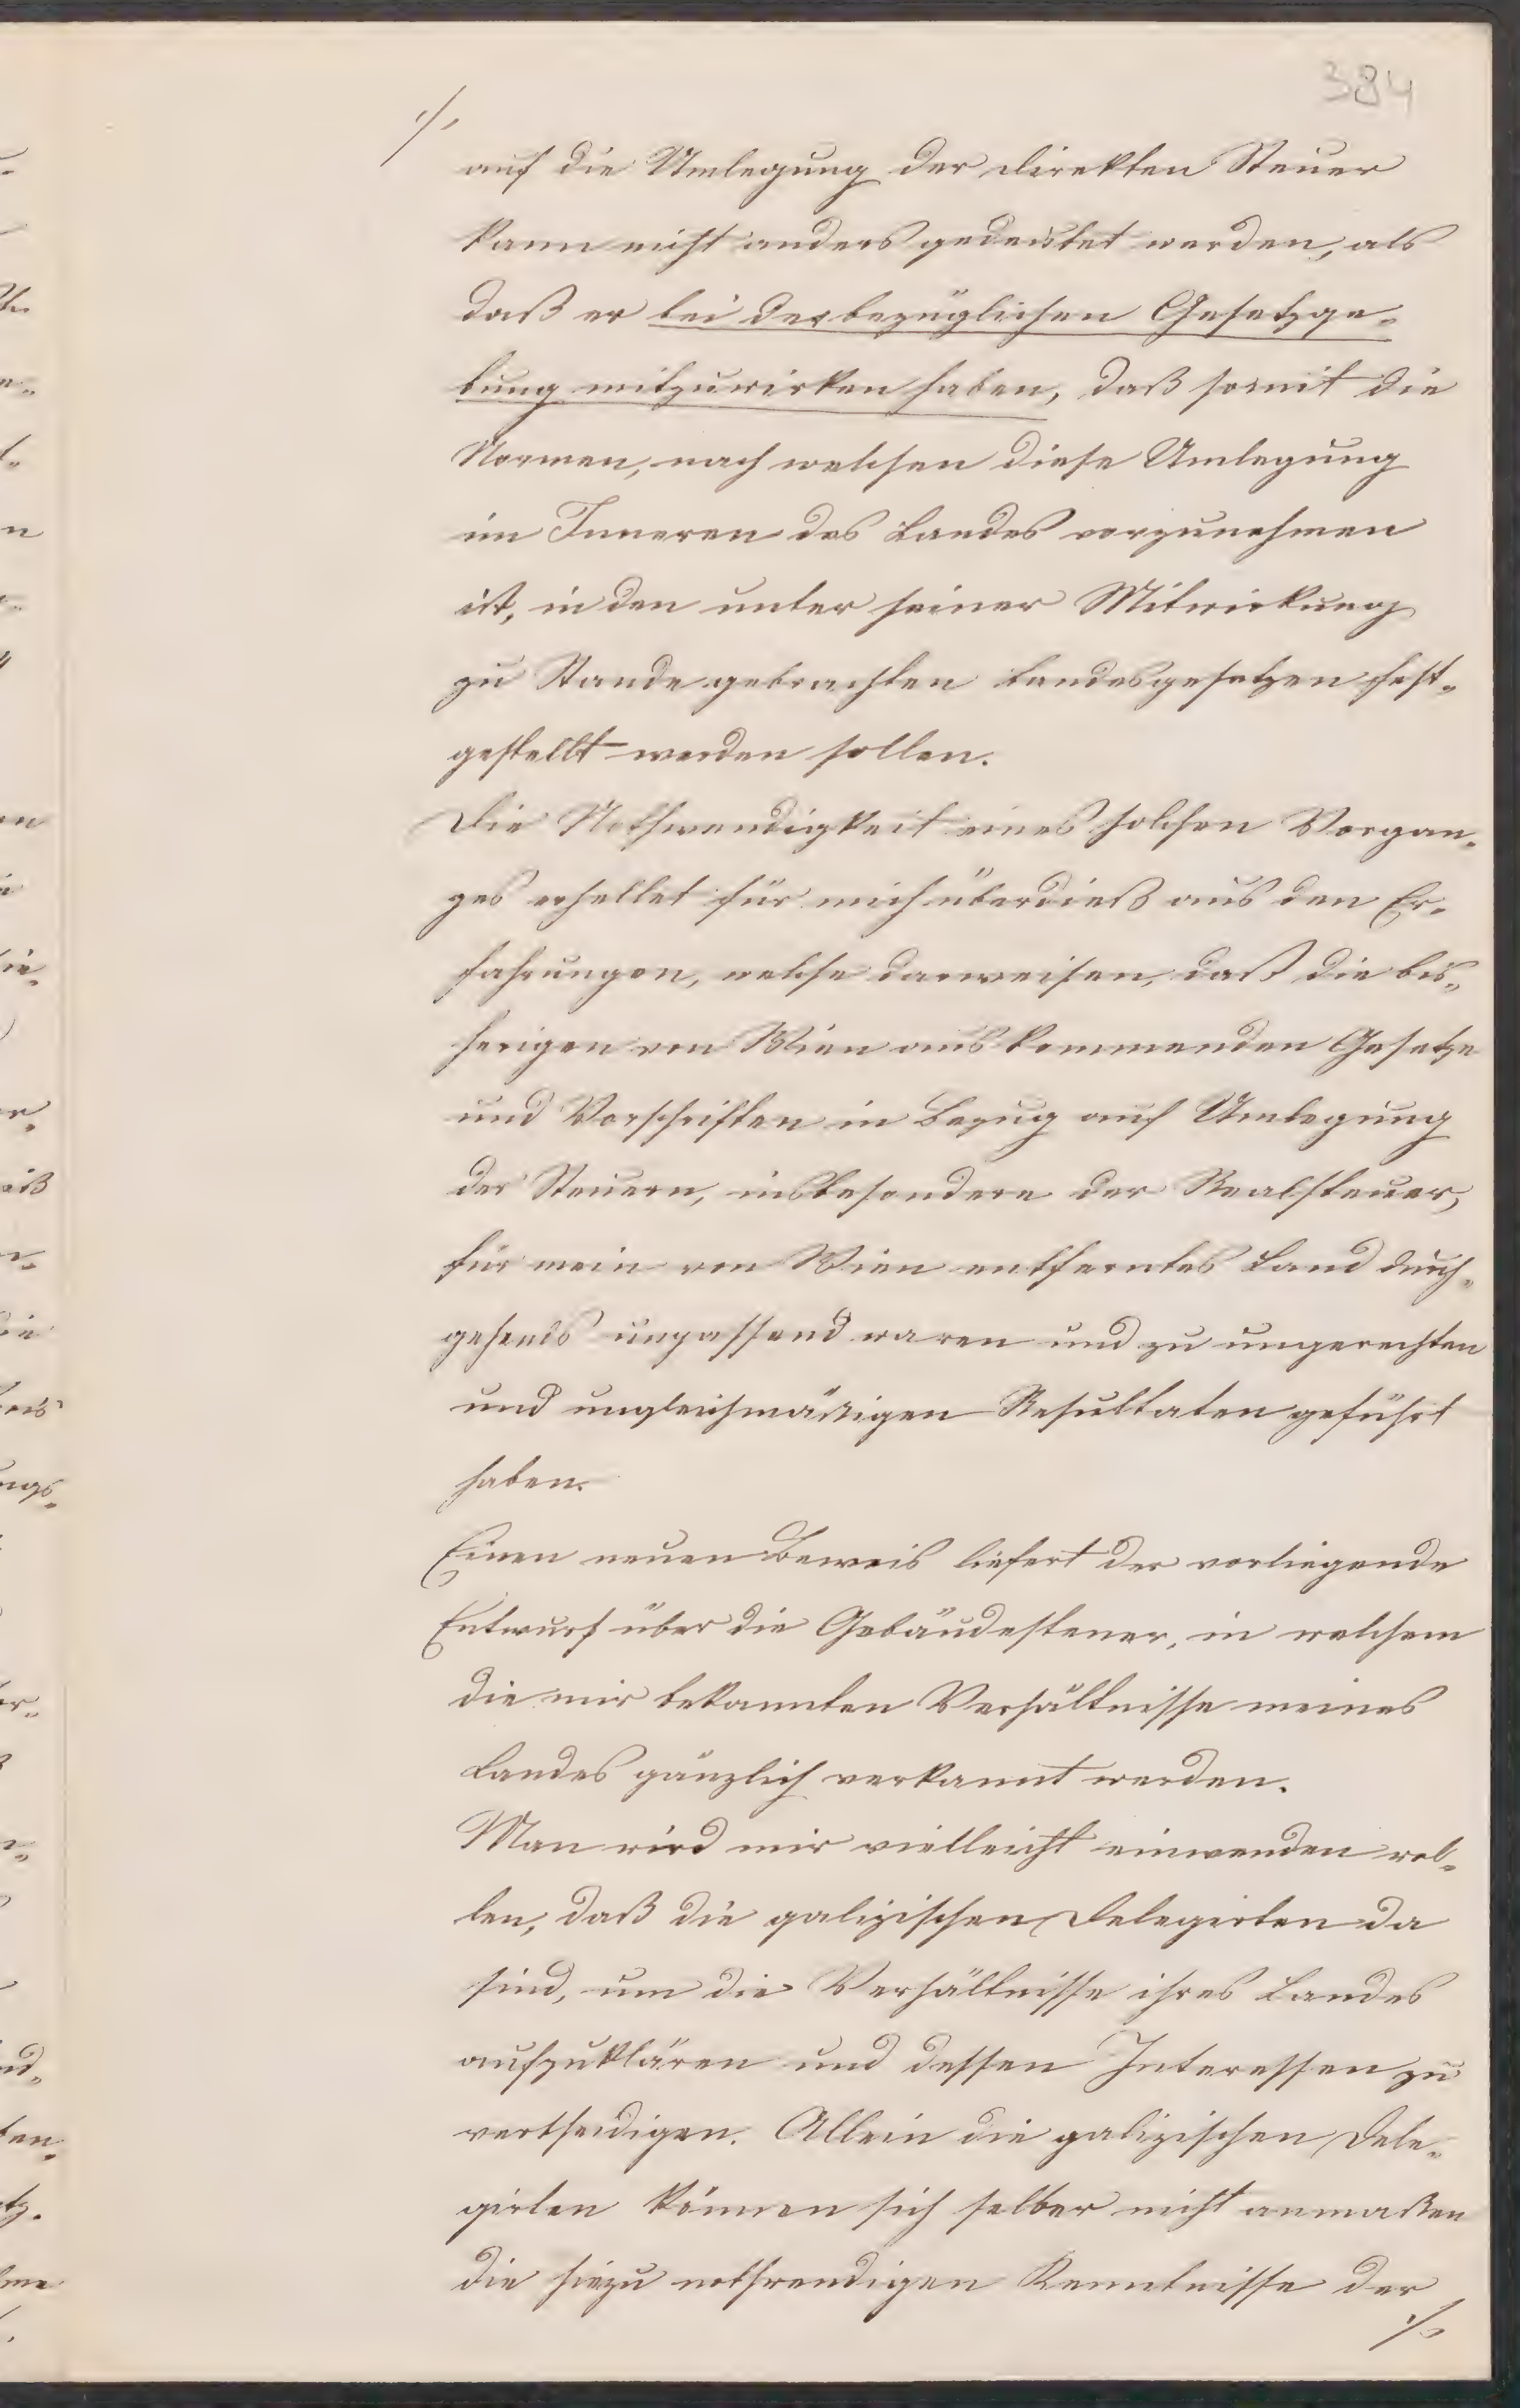 384
./.
auf die Umlegung der direkten Steuer
kann nicht anders gedeutet werden, als
daß er bei der bezüglichen Gesetzge-
bung mitzuwirken haben, daß somit die
Normen, nach welchen diese Umlegung
im Inneren des Landes vorzunehmen
ist, in den unter seiner Mitwirkung
zu Stande gebrachten Landesgesetzen fest-
gestellt werden sollen.
Die Nothwendigkeit eines solchen Vorgan-
ges erhellet für mich überdieß aus den Er-
fahrungen, welche darweisen, daß die bis-
herigen von Wien aus kommenden Gesetze
und Vorschriften in Bezug auf Umlegung
der Steuern, insbesondere der Realsteuer,
für mein von Wien entferntes Land durch-
gehends unpassend waren und zu ungerechten
und ungleichmäßigen Resultaten geführt
haben.
Einen neuen Beweis liefert der vorliegende
Entwurf über die Gebäudesteuer, in welchem
die mir bekannten Verhältnisse meines
Landes gänzlich verkannt werden.
Man wird mir vielleicht einwenden wol-
len, daß die galizischen Delegirten da
sind, um die Verhältnisse ihres Landes
aufzuklären und dessen Interessen zu
vertheidigen. Allein die galizischen Dele-
girten können sich selber nicht anmaßen
die hiezu nothwendigen Kenntnisse der
./.